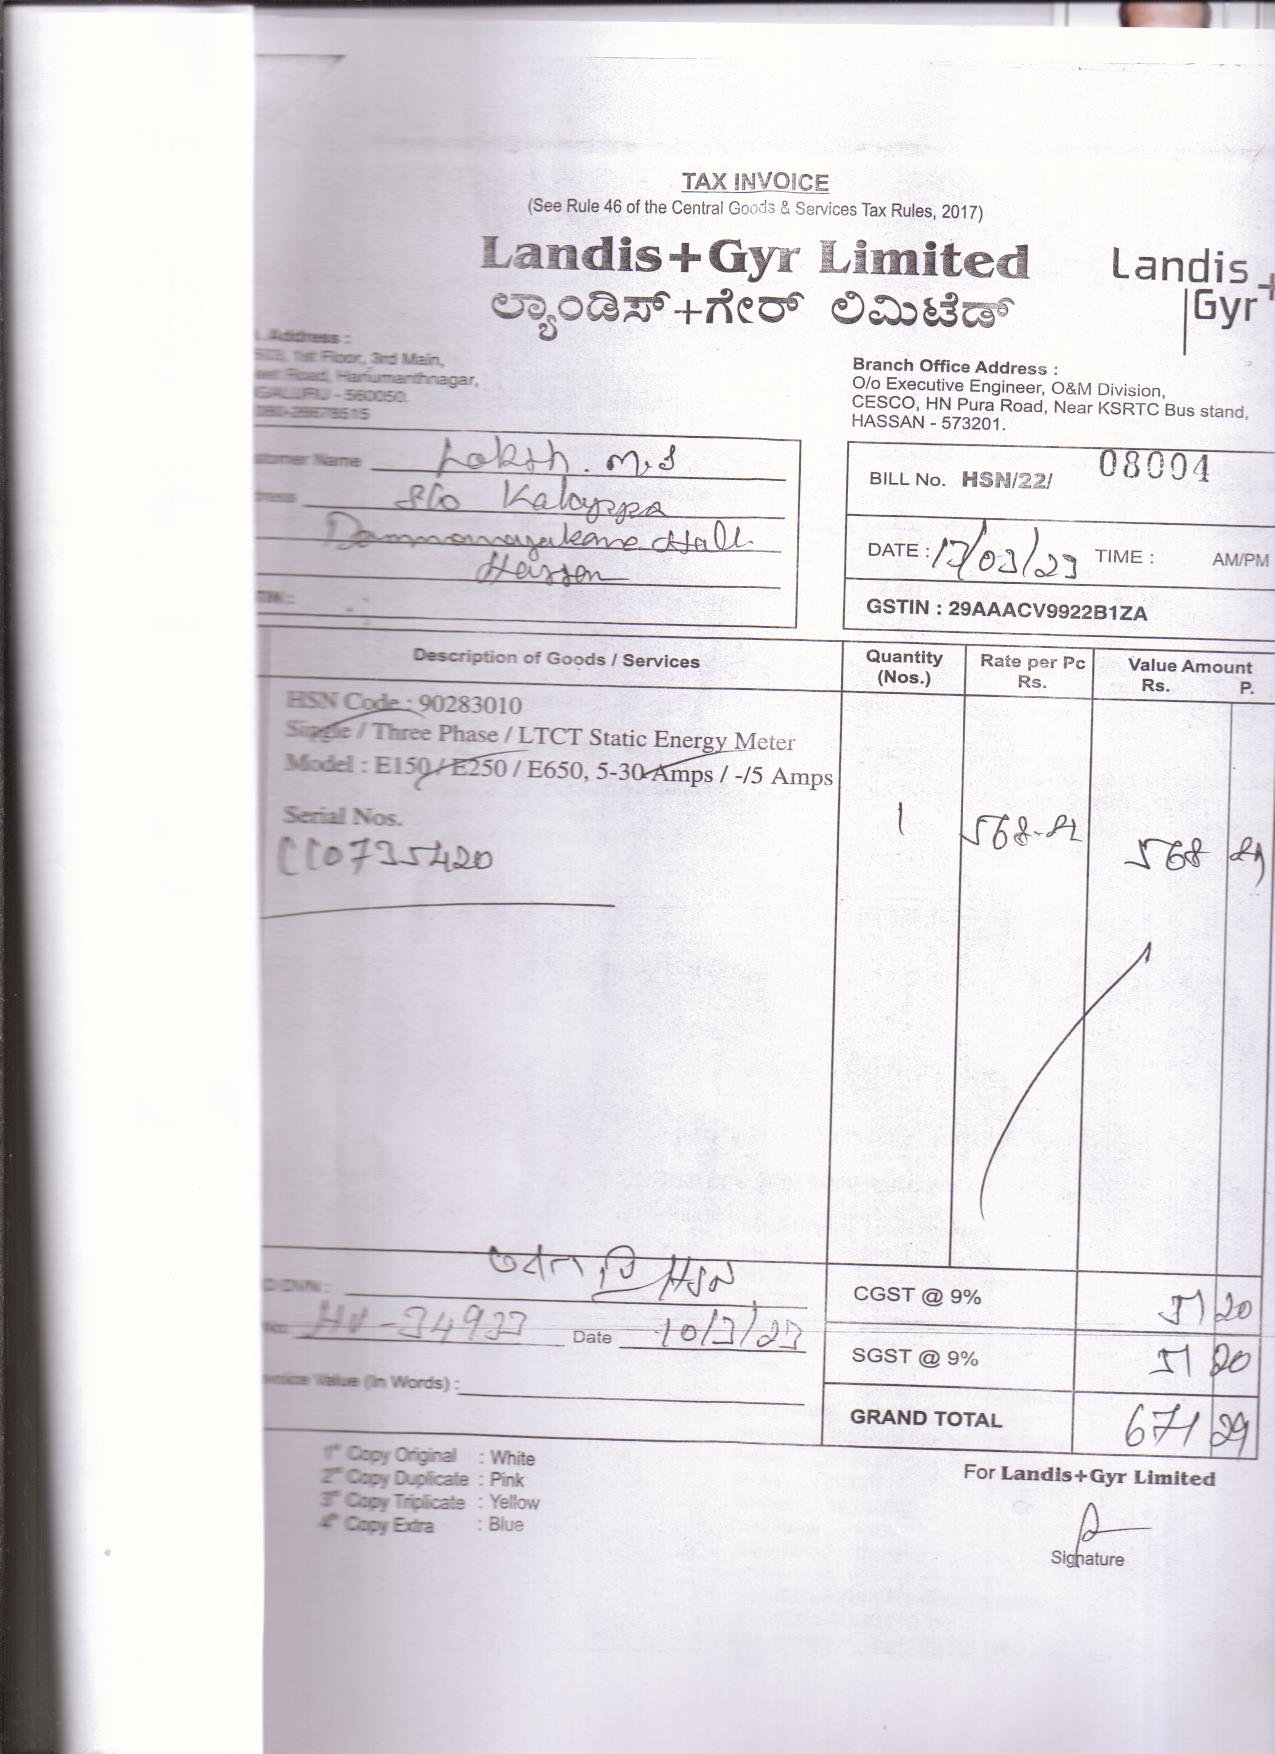 TAX INVOICE
(See Rule 46 of the Central Goods & Services Tax Rules, 2017)
Landis+Gyr Limited
ಲ್ಯಾಂಡಿಸ್+ಗೇರ್ ಲಿಮಿಟೆಡ್
Landis+
Gyr
Address :
1st Floor, 3rd Main,
Road, Hanumanthnagar,
- 560050.
Branch Office Address :
O/o Executive Engineer, O&M Division,
CESCO, HN Pura Road, Near KSRTC Bus stand,
HASSAN - 573201.
Name Loksh. M.S
S/o Kalayppa
Hassan
BILL No. HSN/22/ 08004
DATE : 17/03/23 TIME : AM/PM
GSTIN : 29AAACV9922B1ZA
Description of Goods / Services Quantity (Nos.) Rate per Pc Rs. Value Amount Rs. P.
HSN Code : 90283010
Single / Three Phase / LTCT Static Energy Meter
Model : E150 / E250 / E650, 5-30 Amps / -/5 Amps
Serial Nos.
CC0735420
1 568
568
HSN
CGST @ 9% 51 20
HV-34933 Date 10/3/23
SGST @ 9% 51 20
Value (In Words) :
GRAND TOTAL 671 29
1st Copy Original : White
2nd Copy Duplicate : Pink
3rd Copy Triplicate : Yellow
4th Copy Extra : Blue
For Landis+Gyr Limited
Signature